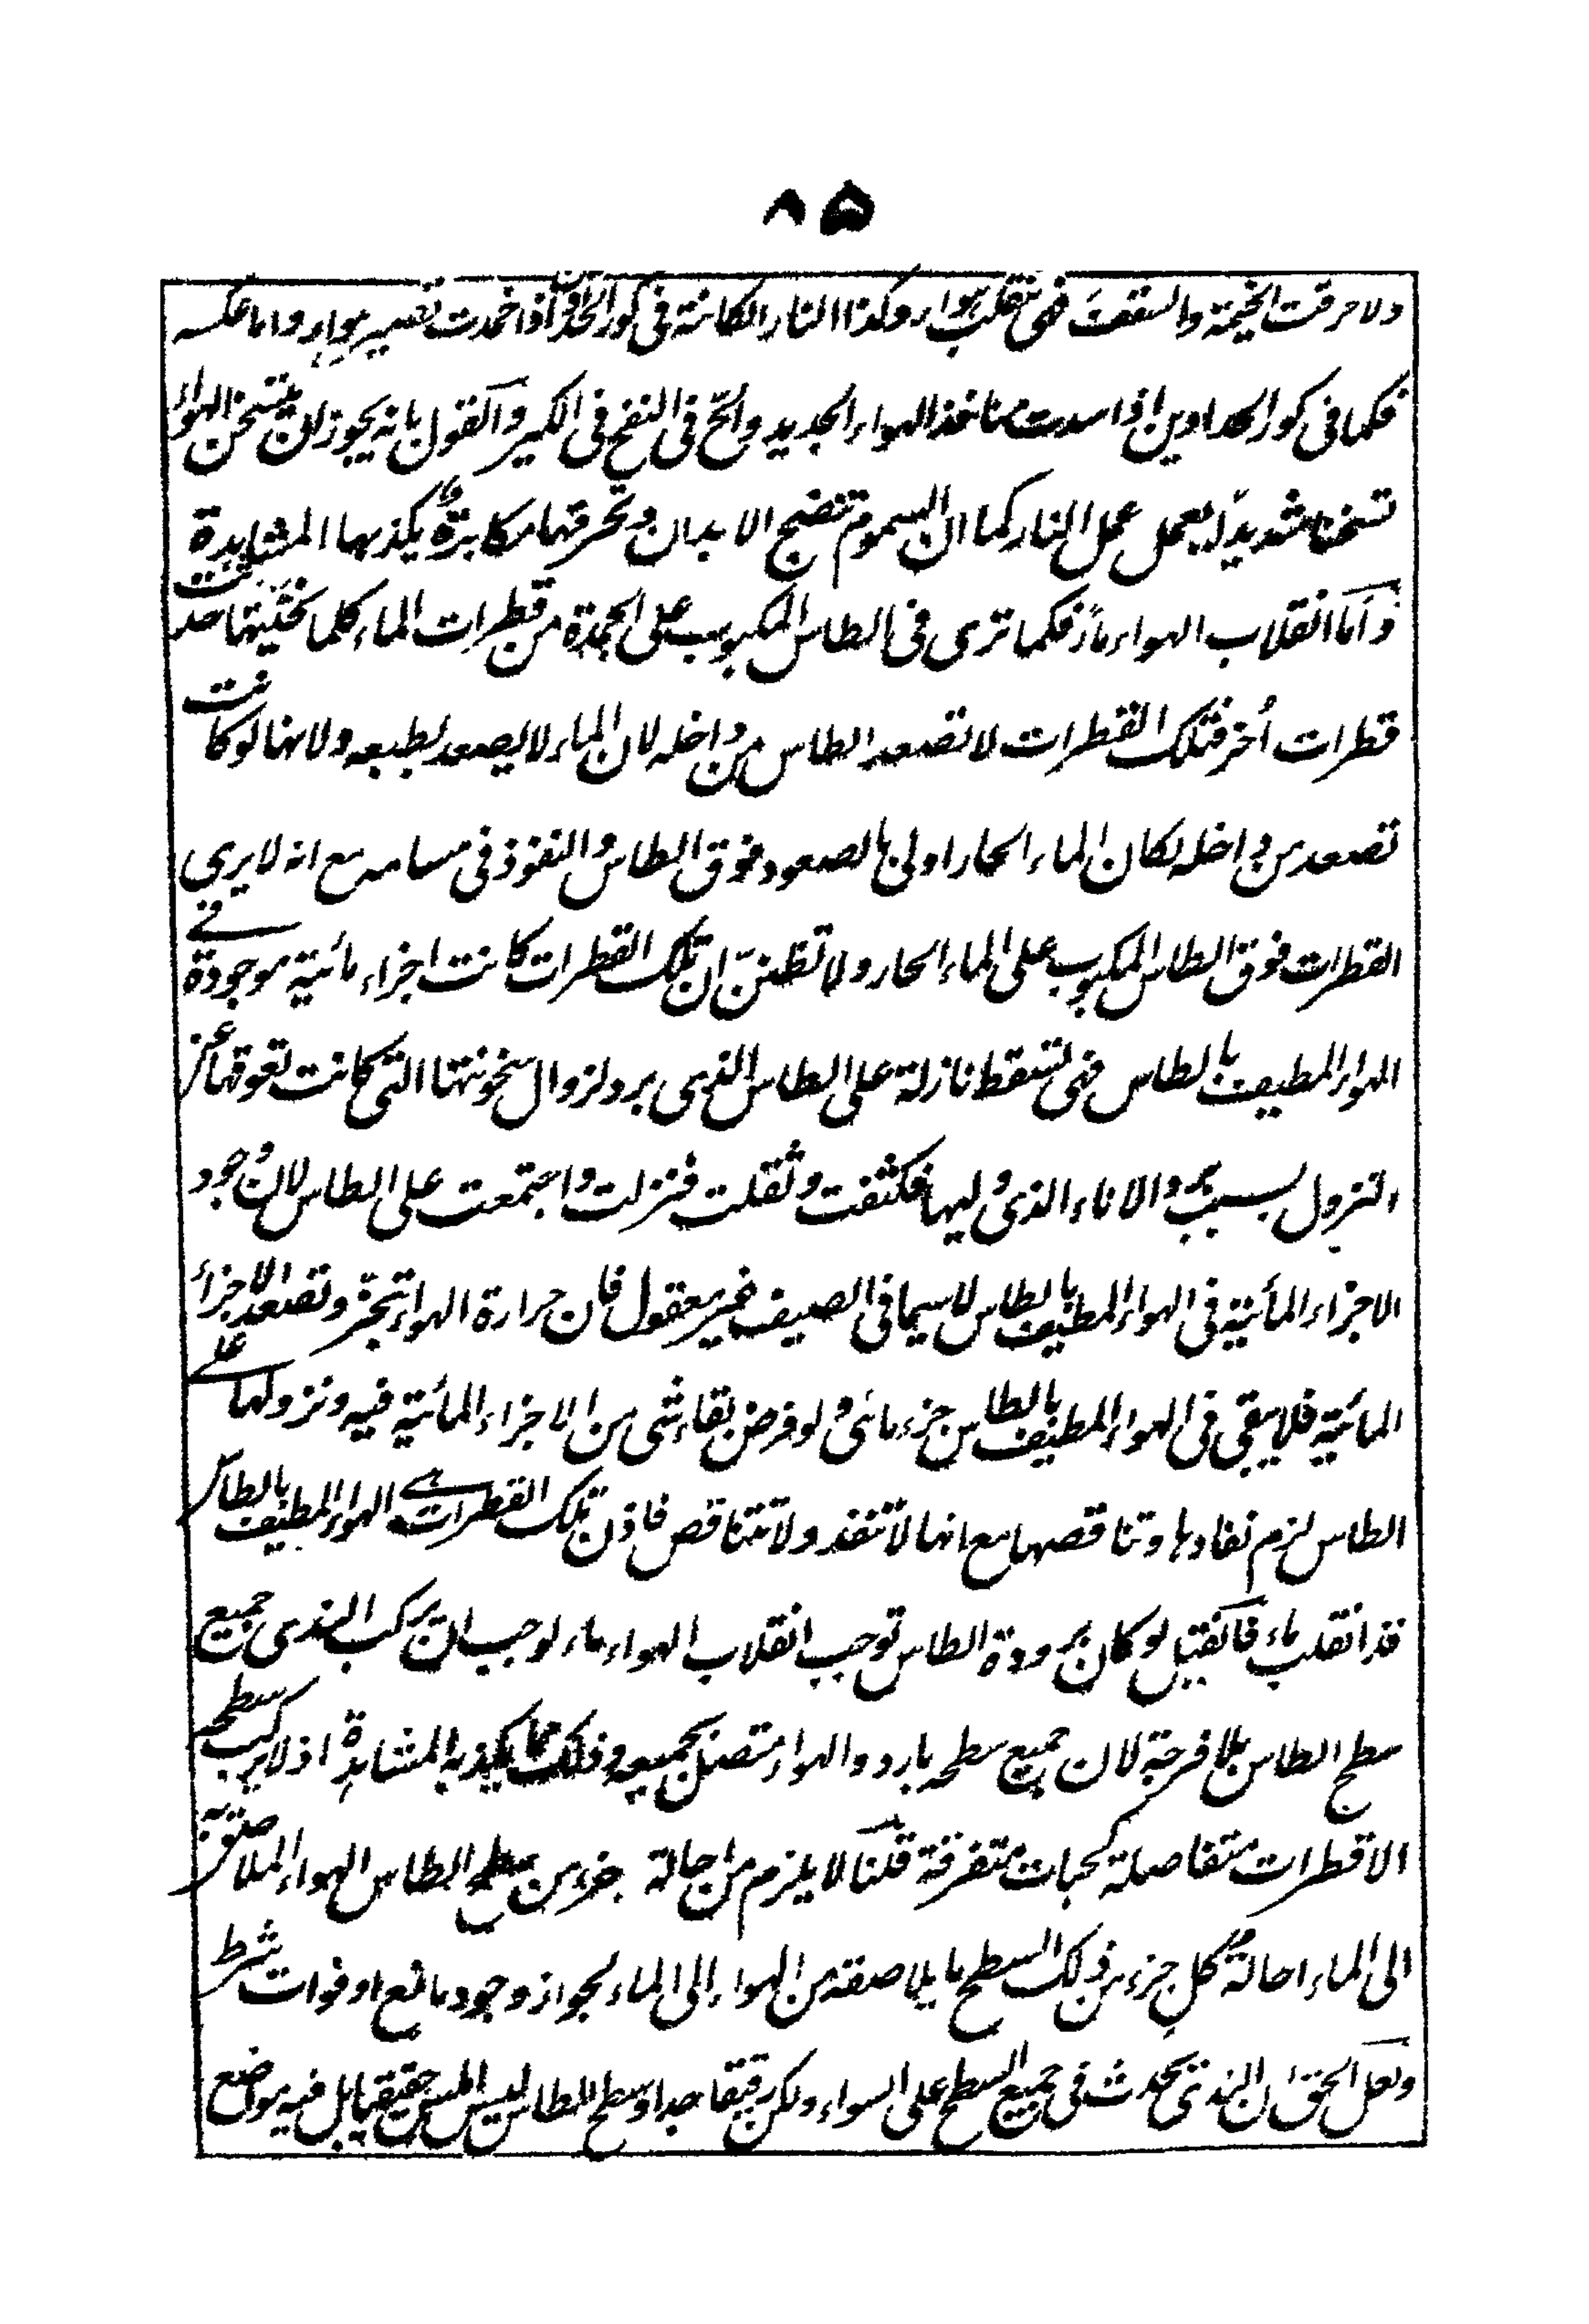 ٨٥
ولاحرقت الخيمة والسقف فهى تنقلب هواء وكذا النار الكائنة فى كور الحدادين اذا خمدت تصير هواء واما عكسه
فكما فى كور الحدادين اذا سدت منافذ الهواء الجديد والح فى النفخ فى الكير والقول بانه يجوز ان يتسخن الهواء
تسخنا شديدا يعمل عمل النار كما ان السموم تنضج الابدان وتحرقها مكابرة يكذبها المشاهدة
واما انقلاب الهواء ماءً فكما ترى فى الطاس المكبوب على الجمدة من قطرات الماء كلما نحيتها حدثت
قطرات أخر فتلك القطرات لا تصعد الطاس من داخله لان الماء لا يصعد لطبعه ولانها لو كانت
تصعد من داخله لكان الماء الحار اولى بالصعود فوق الطاس والنفوذ فى مسامه مع انه لا يرى
القطرات فوق الطاس المكبوب على الماء الحار ولا تظنن ان تلك القطرات كانت اجزاء مائية موجودة فى
الهواء المطيف بالطاس فهى تسقط نازلة على الطاس الذى برد لزوال سخونتها التى كانت تعوقها عن
النزول بسبب برد الاناء الذى وليها فكثفت وثقلت فنزلت واجتمعت على الطاس لان وجود
الاجزاء المائية فى الهواء المطيف بالطاس لاسيما فى الصيف غير معقول فان حرارة الهواء تبخر وتصعد الاجزاء
المائية فلا يبقى فى الهواء المطيف بالطاس جزء مائى ولو فرض بقاء شئ من الاجزاء المائية فيه ونزولها على
الطاس لزم نفادها وتناقصها مع انها لا تنفد ولا تتناقص فاذن تلك القطرات هى الهواء المطيف بالطاس
قد انقلب ماء فان قيل لو كان برودة الطاس توجب انقلاب الهواء ماء لوجب ان يركب الندى جميع
سطح الطاس بلا فرجة لان جميع سطحه بارد والهواء متصل بجميعه وذلك مما يكذبه المشاهدة اذ لا يركب سطحه
الا قطرات متفاصلة كحبات متفرقة قلنا لا يلزم من احالة جزء من سطح الطاس الهواء الملاصق به
الى الماء احالة كل جزء من ذلك السطح ما يلاصقه من الهواء الى الماء لجواز وجود مانع او فوات شرط
ولعل الحق ان الندى يحدث فى جميع السطح على السواء ولكن رقيقا جدا وسطح الطاس ليس املس حقيقيا بل فيه مواضع